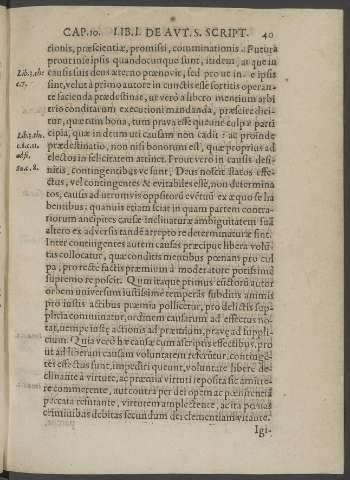 CAP.10. LIB.I. DE AVT. S. SCRIPT. 40
tionis, præscientiæ, promissi, comminationis. Futura
prout in seipsis quandocunque sunt, itidem, at que in
Lib.3.the
c.7.
causis suis deus æterno prænovit, sed prout in se ipsis
sint, velut à primo autore in cunctis esse sortitis operan-
te facienda prædestinat, ut verò à libero mentium arbi
trio conditarum executioni mandanda, præscire dici-
tur, quæ tum bona, tum prava esse queunt culpæ parti
Lib.2.th.
cipia, quæ in deum uti causam non cadit: ac proinde
prædestinatio, non nisi bonorum est, quæ proprius ad
electos in felicitatem attinet. Prout verò in causis defi-
nitis, contingentibus ve sunt, Deus nosse statos effe-
ctus, vel contingentes & evitabiles esse, non determina
tos, causis ad utrumvis oppositorū evētui ex æquo se ha
bentibus: quamvis etiam sciat in quam partem contra-
riorum ancipites causæ inclinaturæ ambiguitatem suā
altero ex adversis tandē arrepto re determinaturæ sint.
Inter contingentes autem causas præcipue libera volū-
tas collocatur, quæ conditis mentibus pœnam pro cul
pa, pro recte factis præmium à moderatore potissimū
supremo reposcit. Qum itaque primus cūctorū autor
orbem universum iustissime temperās subditis animis
pro iustis actibus præmia pollicetur, pro delictis sup-
plicia comminatur, ordinem causarum ad effectus no-
tat, nempe iustę actionis ad præmium, pravę ad suppli-
cium. Quia verò hæ causæ cum ascriptis effectibus, pro
ut ad liberam causam voluntatem referūtur, contingē-
tes effectus sunt, impediri queunt, voluntate libere de-
clinante à virtute, ac præmia virtuti reposita sic amitte-
re commerente, aut contrà per dei opem ac pœnitentiā
peccata refutante, virtutem amplectente, ac ita pœnas
criminibus debitas secundum dei clementiam vitante.
Igi-